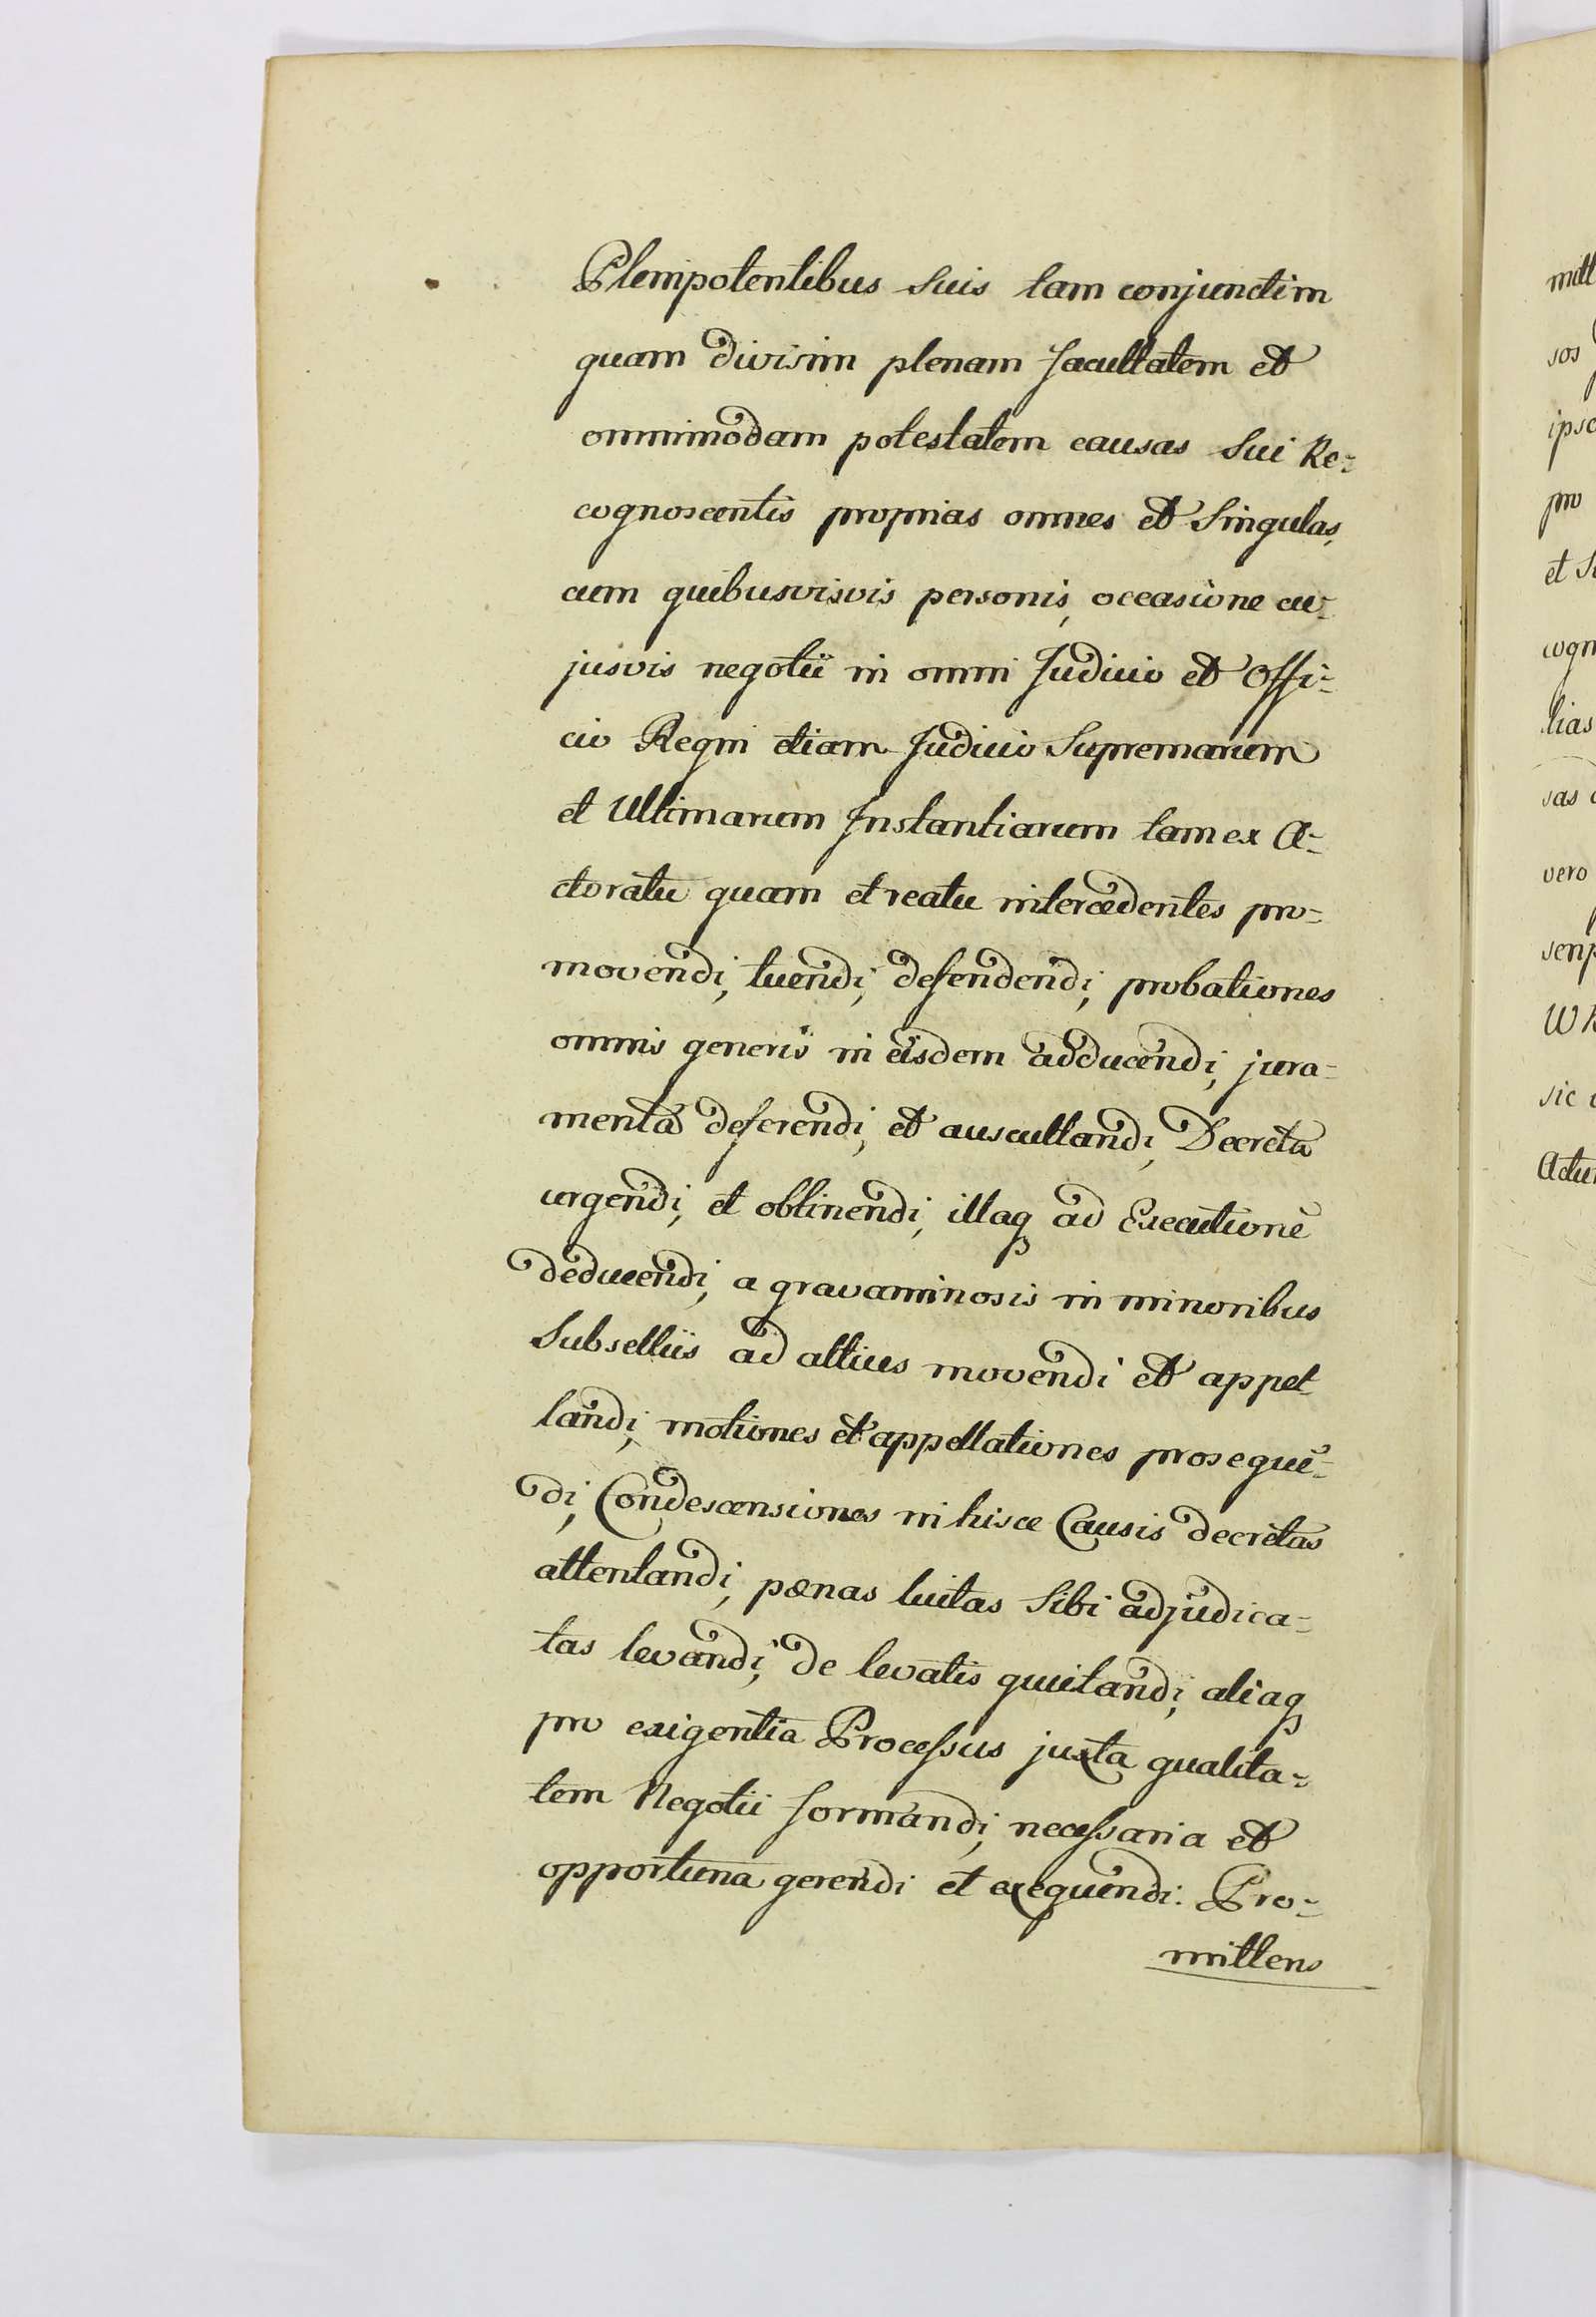 Plenipotentibus Suis tam conjunctim
quam divisim plenam facultatem et
omnimodam potestatem causas Sui Re=
cognoscentis proprias omnes et Singulas,
cum quibusvisvis personis, occasione cu=
jusvis negotii in omni Judicio et Offi=
cio Regni etiam Judicio Supremarum
et Ultimarum Instantiarum tam ex A=
ctoratu quam et reatu intercedentes pro=
movendi, tuendi, defendendi, probationes
omnis generis in eisdem adducendi, jura=
menta deferendi, et auscultandi, Decreta
urgendi, et obtinendi, illaq ad Executionē
deducendi, a gravaminosis in minoribus
Subselliis ad altius movendi et appel
landi, motiones et appellationes prosequē=
di, Condescensiones in hisce Causis decretas
attentandi, pœnas luitas Sibi adjudica=
tas levandi, de levatis quuitandi, aliaq
pro exigentia Processus juxta qualita=
tem Negotii formandi, necessaria et
opportuna gerendi et exequendi. Pro=
mittens
mitt
sos
ipso
pro
et
cogn
lias
sas
vero
W
sic
Actu